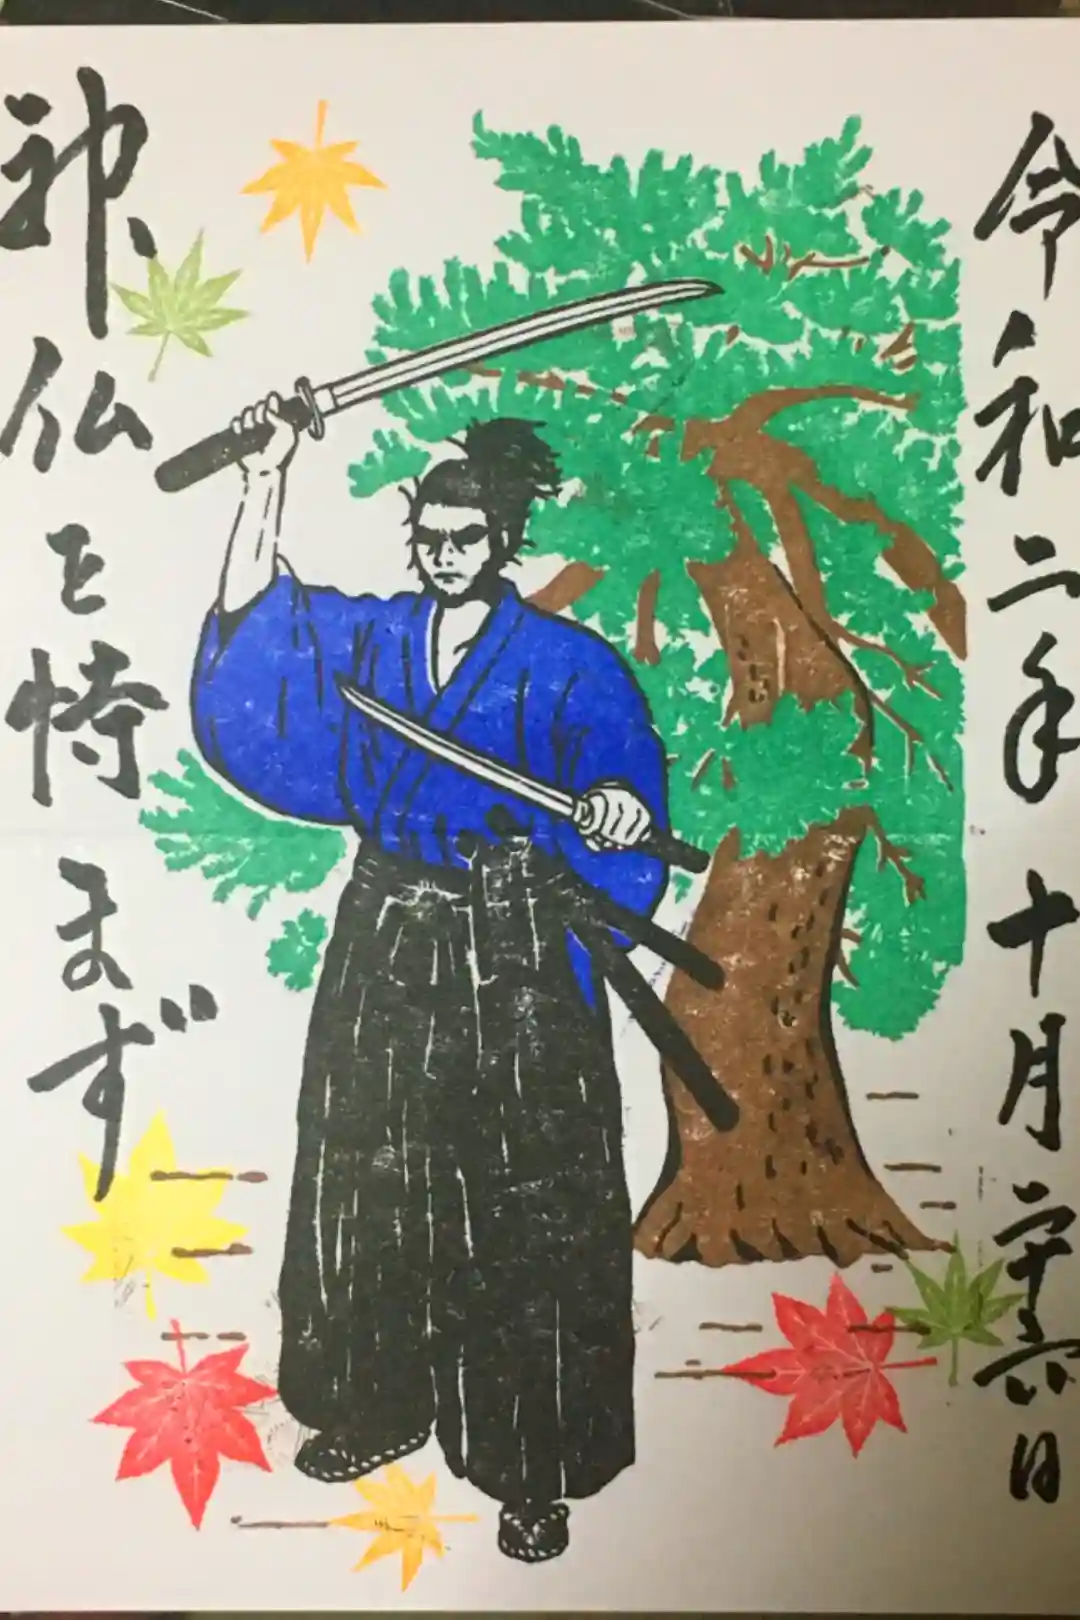 令和二年十月二十六日
神仏を恃まず